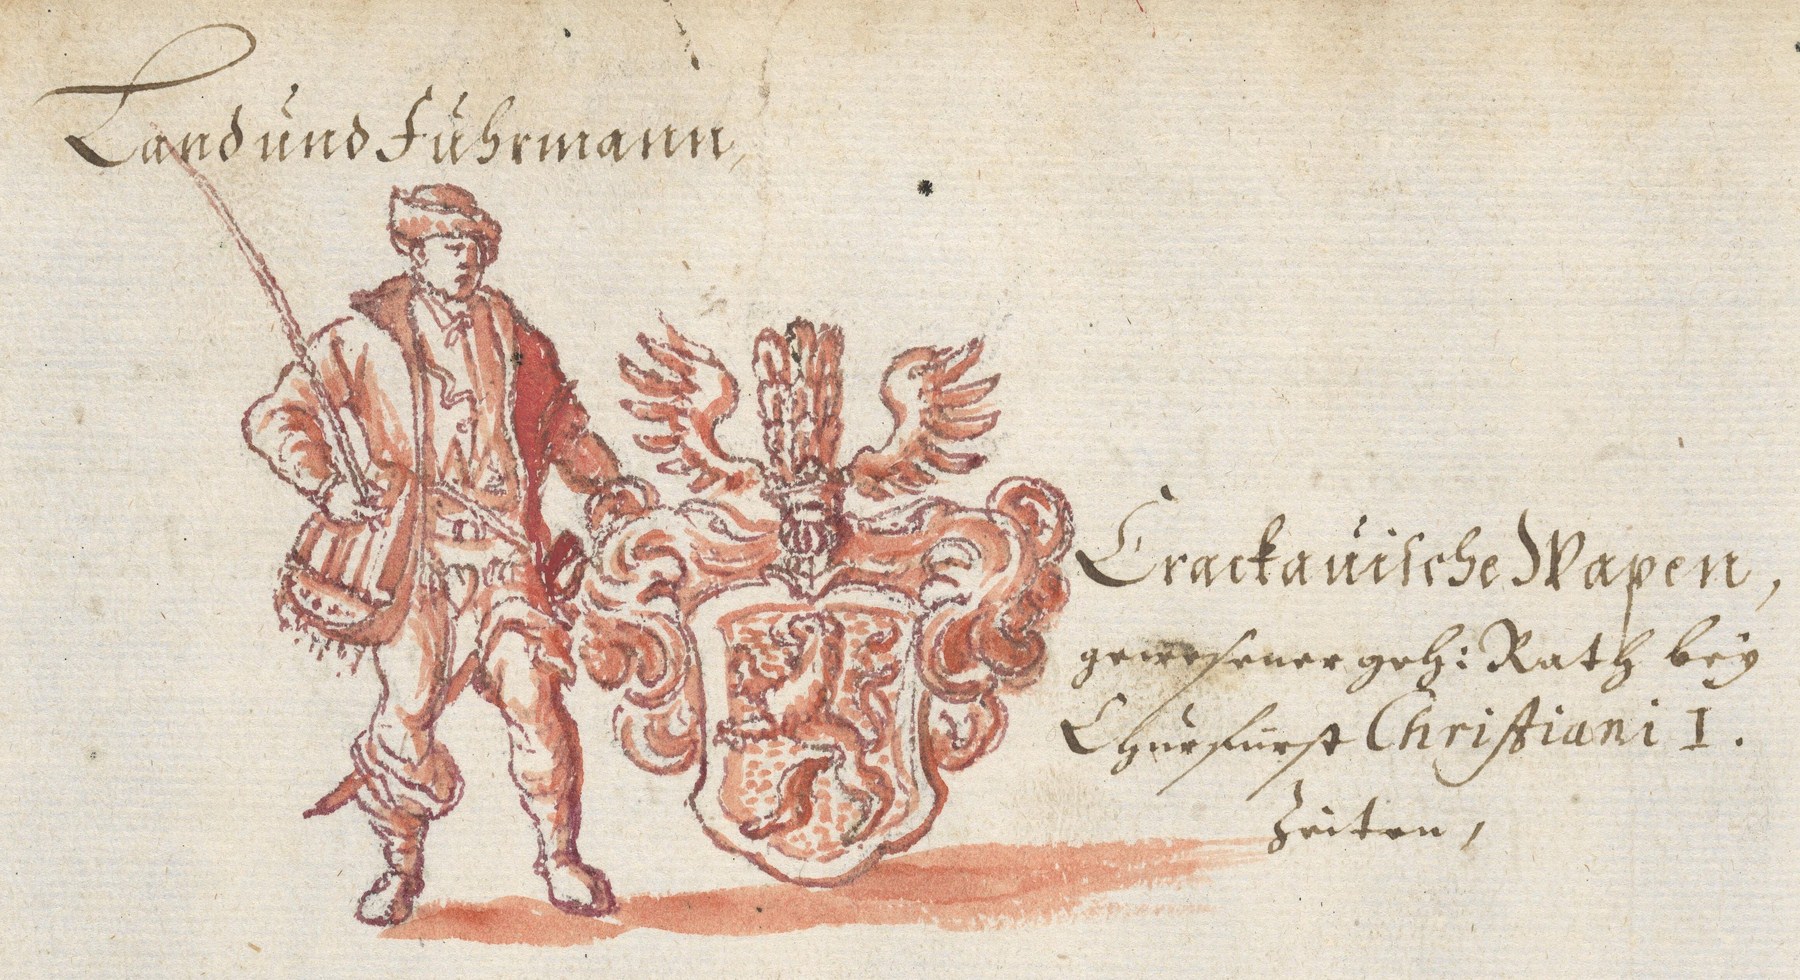 Land und Fuhrmann,
Crackauische Wapen,
gewesener geh: Rath bey
Churfurst Christiani I.
Zeiten,